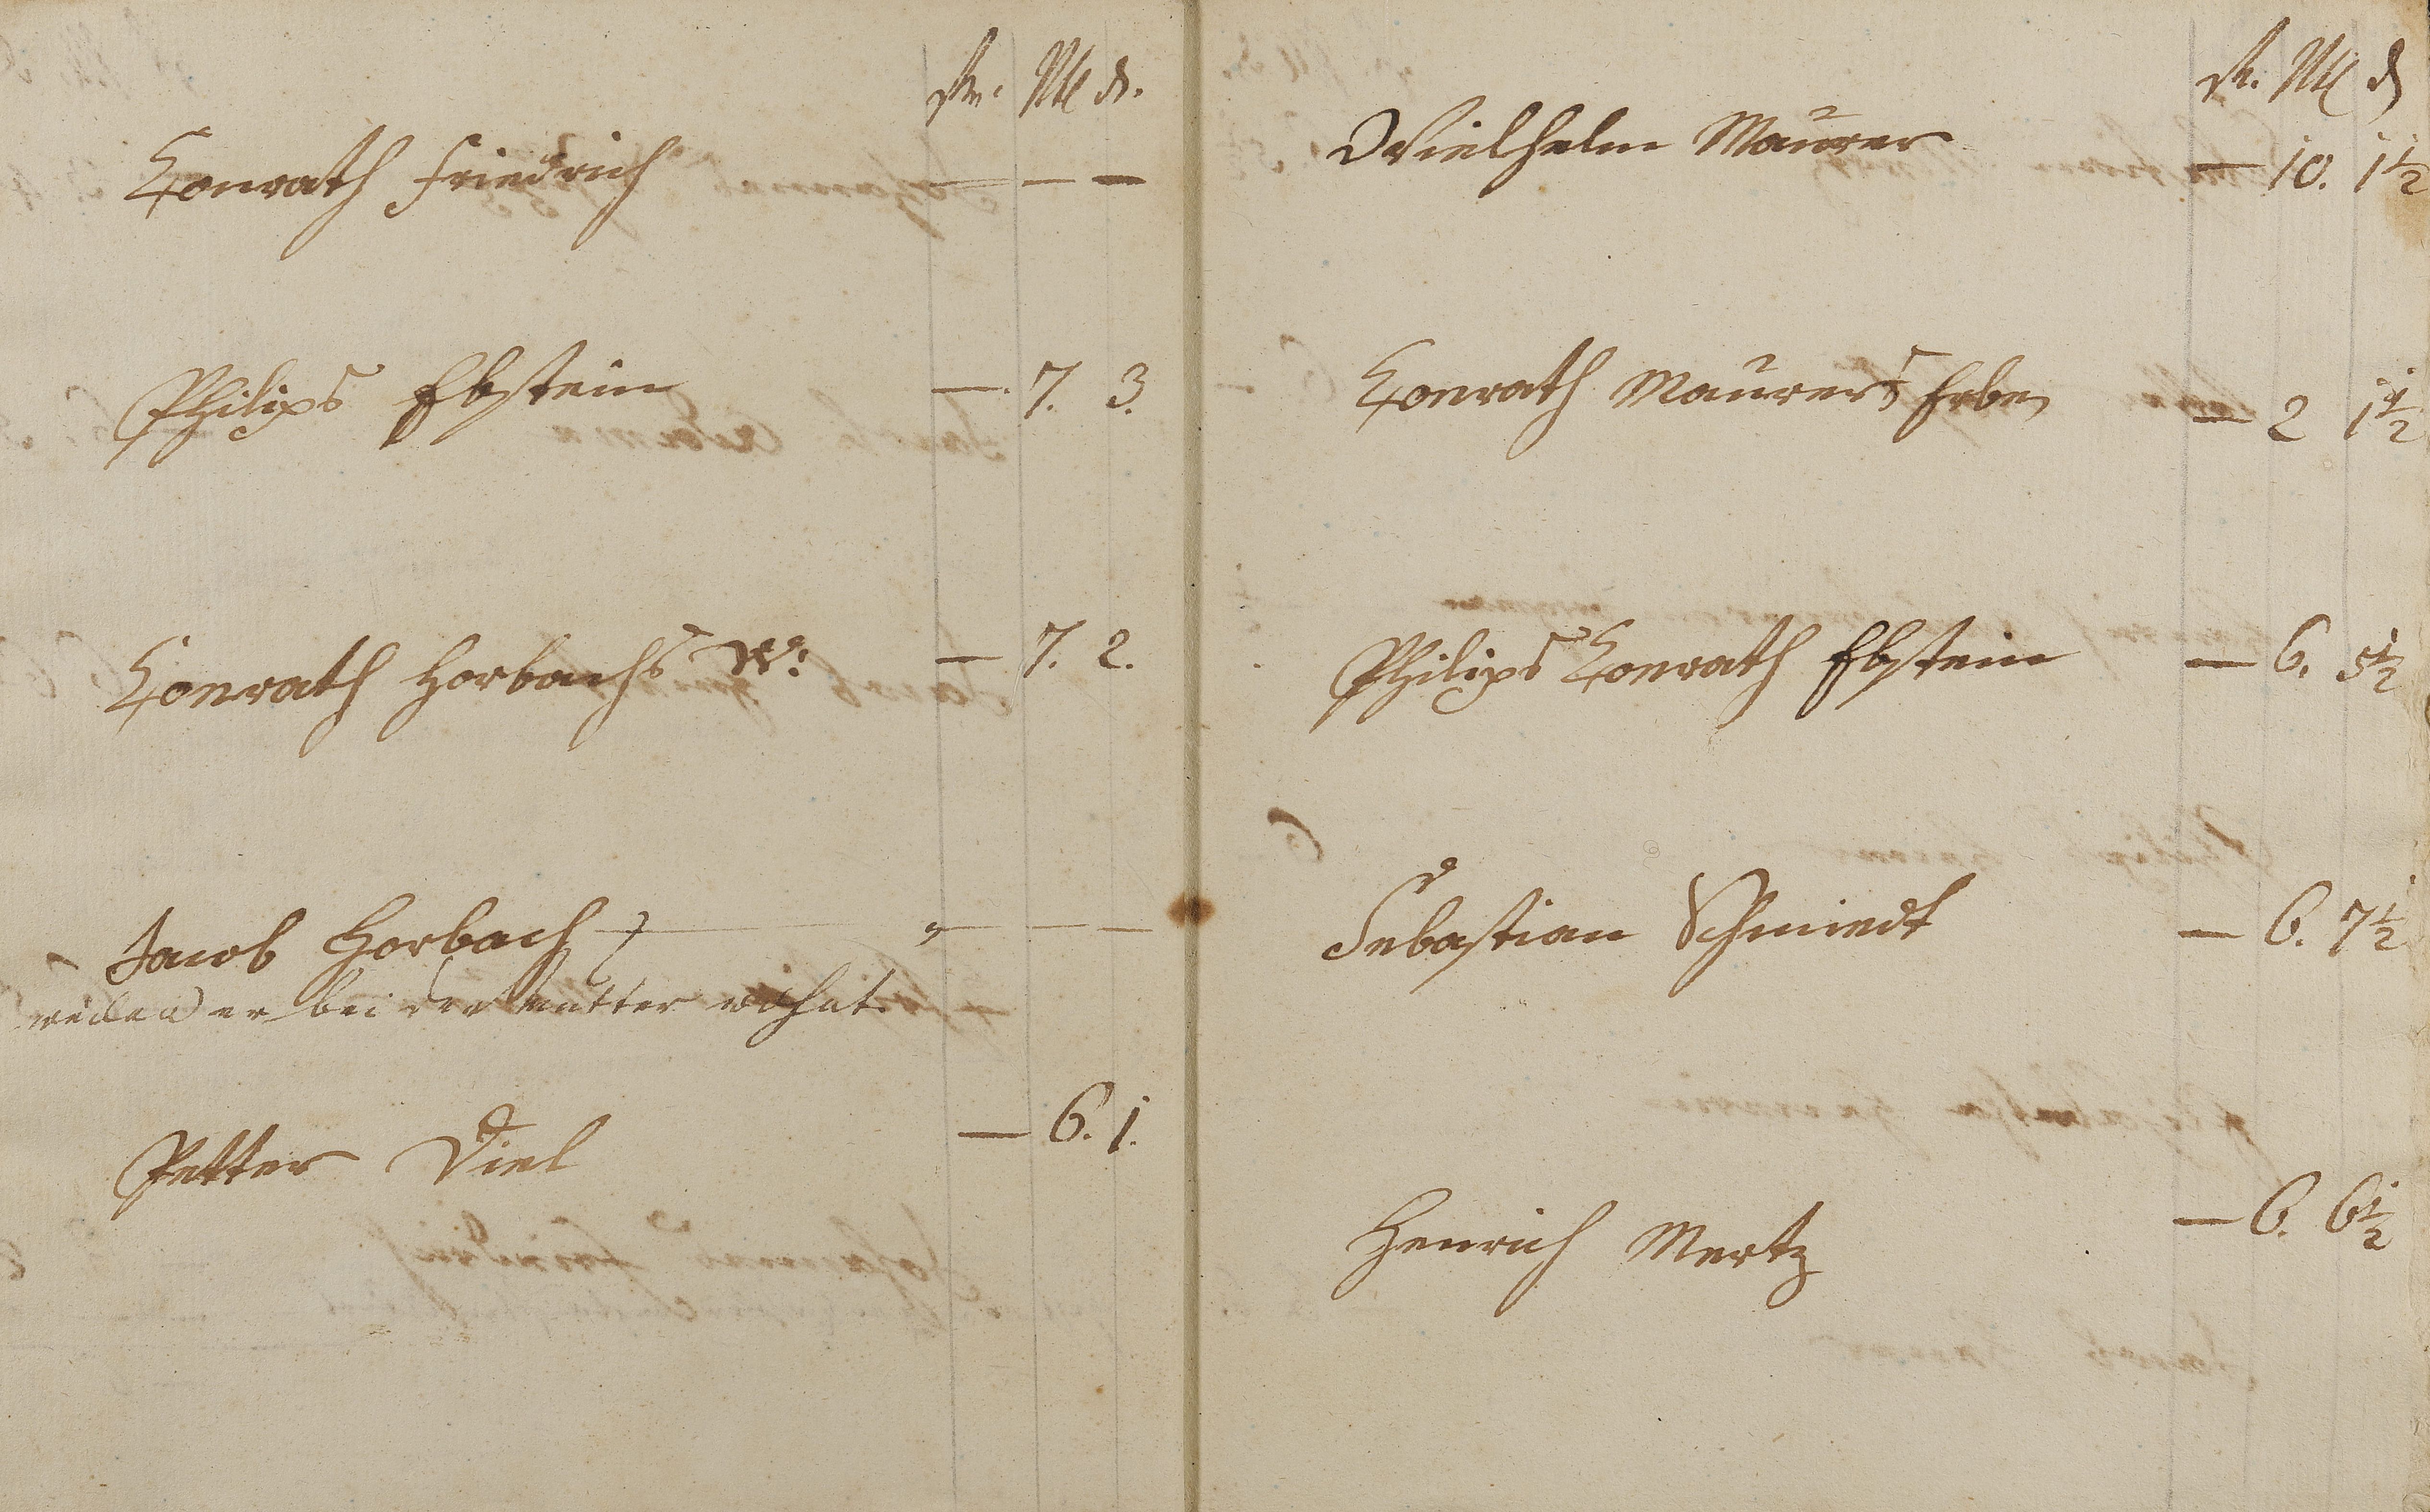 rtl. Alb d.
Conrath Friedrich — — —
Philips Ebstein —. 7. 3.
Conrath Horbachs W: — 7. 2.
Jacob Horbach — — —
weilen er bei der mutter wohnt.
Petter Diel — 6. 1.
rtl. Alb d
Wielhelm Maurer — 10. 1½
Conrath Maurers Erben — 2 1½
Philips Conrath Ebstein — 6. 5½
Sebastian Schmiedt — 6. 7½
Henrich Mertz — 6. 6½